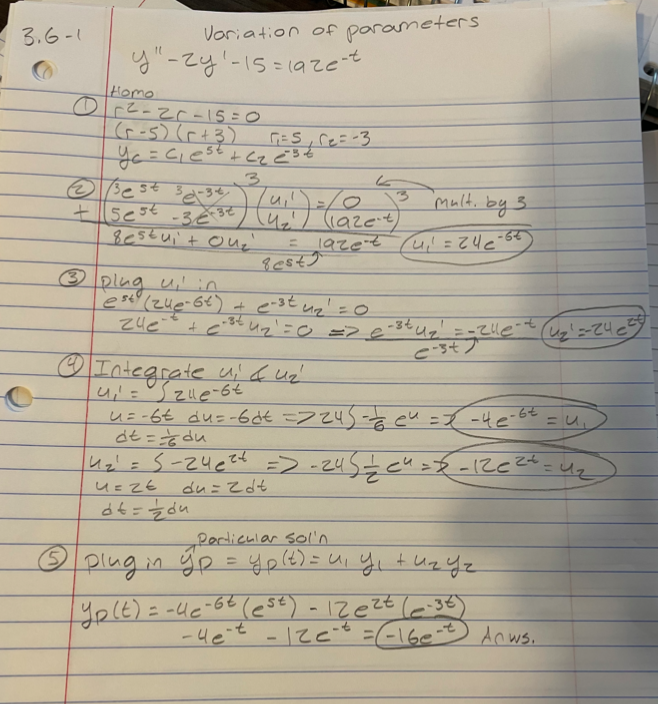 3.6-1 Variation of parameters
y'' - 2y' - 15 = 192e^-t
Homo
① r² - 2r - 15 = 0
(r-5)(r+3) r₁=5, r₂=-3
y_c = c₁e^5t + c₂e^-3t
② (3e^5t 3e^-3t) 3 (u₁') = (0) 3 ← mult. by 3
+ (5e^5t -3e^-3t) (u₂') (192e^-t)
8e^5t u₁' + 0u₂' = 192e^-t u₁' = 24e^-6t
8e^5t
③ plug u₁' in
e^5t (24e^-6t) + e^-3t u₂' = 0
24e^-t + e^-3t u₂' = 0 => e^-3t u₂' = -24e^-t u₂' = -24e^2t
e^-3t
④ Integrate u₁' & u₂'
u₁' = ∫24e^-6t
u = -6t du = -6dt => 24∫-1/6 e^u => -4e^-6t = u₁
dt = -1/6 du
u₂' = ∫-24e^2t => -24∫1/2 e^u => -12e^2t = u₂
u = 2t du = 2dt
dt = 1/2 du
particular sol'n
⑤ plug in yp = yp(t) = u₁y₁ + u₂y₂
yp(t) = -4e^-6t (e^5t) - 12e^2t (e^-3t)
-4e^-t - 12e^-t = -16e^-t Answ.